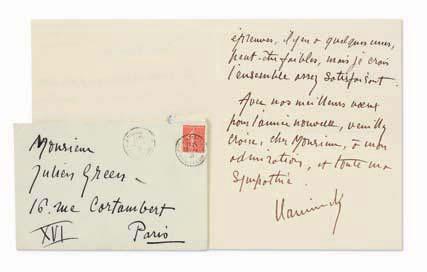 épreuves, il y en a quelques unes,
peut-être faibles, mais je crois
l'ensemble assez satisfaisant.
Avec nos meilleurs vœux
pour l'année nouvelle, veuillez
croire, cher Monsieur, à mon
admiration, et toute ma
sympathie.
Vlaminck
Monsieur
Julien Green
16. rue Cortambert
XVI Paris